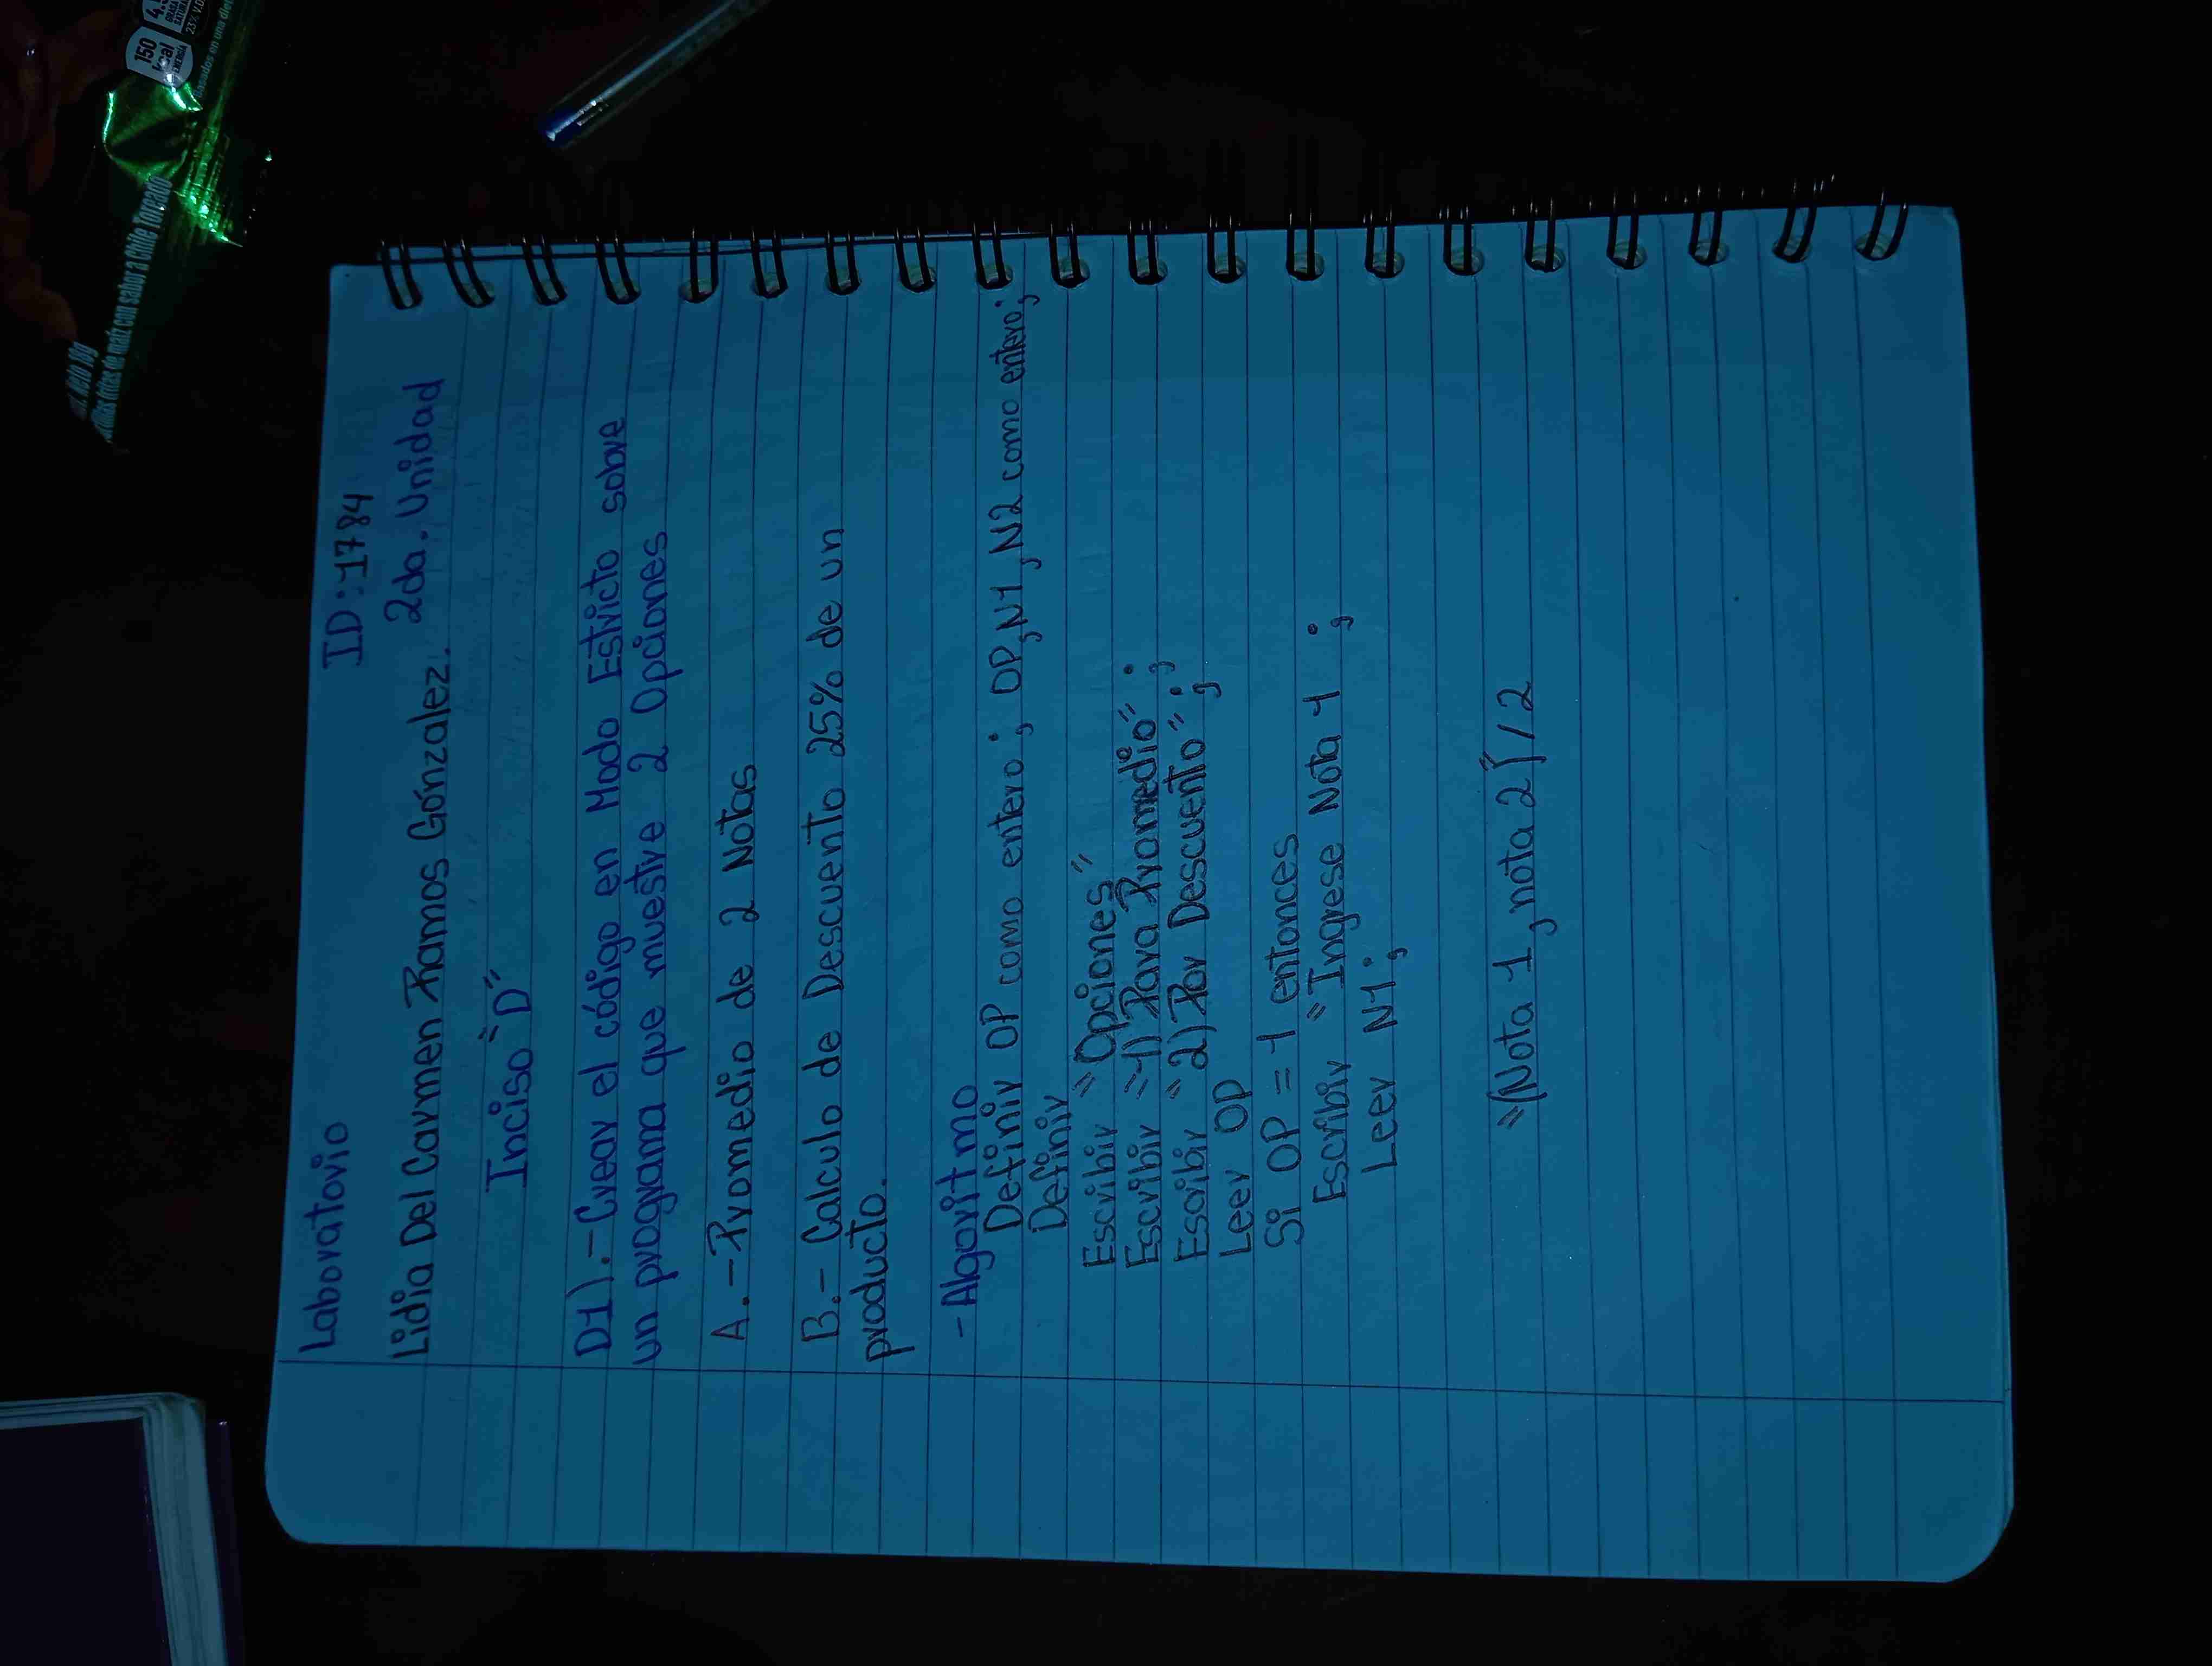 Laboratorio ID:1784
Lidia Del Carmen Ramos Gónzalez. 2da. Unidad
Inciso "D"
D1).- Crear el código en Modo Estricto sobre
un programa que muestre 2 Opciones
A.- Promedio de 2 Notas
B.- Calculo de Descuento 25% de un
producto.
- Algoritmo
Definir OP como entero; OP,N1,N2 como entero;
Definir
Escribir "Opciones"
Escribir "1) Para Promedio";
Escribir "2) Por Descuento";
Leer OP
Si OP = 1 entonces
Escribir "Ingrese Nota 1;
Leer N1;
"(Nota 1, nota 2)"/2
150
kcal
23% V.D
basados en una diet
fritas de maíz con sabor a Chile Toreado